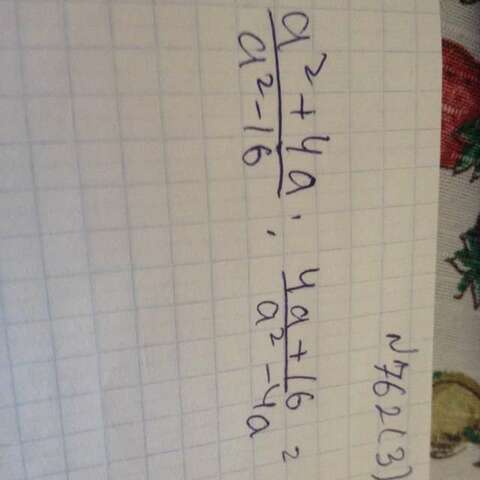 №762(3)
a²+4a : 4a+16 =
a²-16 a²-4a